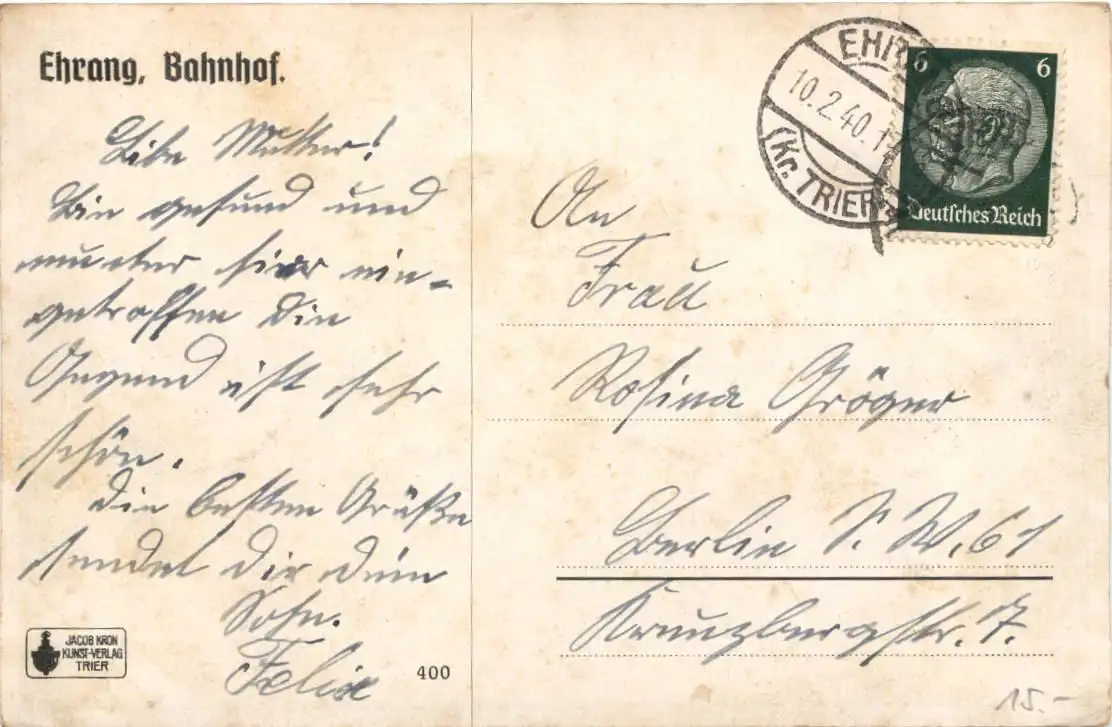 Ehrang, Bahnhof.
Liebe Mutter!
Bin gesund und
munter hier ein-
getroffen die
Gegend ist sehr
schön.
die besten Grüße
sendet dir dein
Sohn.
Felix
JACOB KRON
KUNST-VERLAG
TRIER
400
EHR
10.2.40.17
(Kr. TRIER
6 6
Deutsches Reich
An
Frau
Rosina Gröger
Berlin S.W. 61
Kreuzbergstr. 7.
15.-